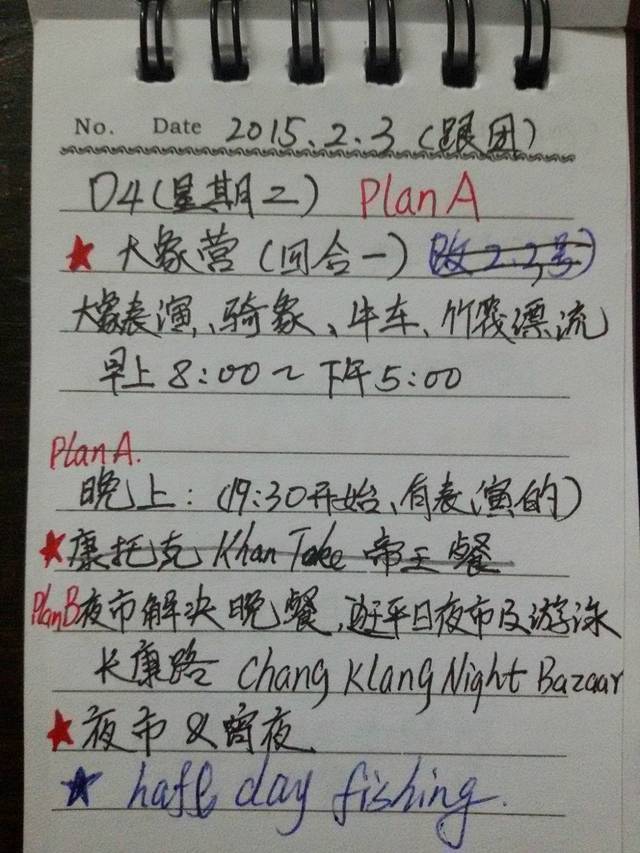 No. Date 2015.2.3 (跟团)
D4(星期二) Plan A
★ 大象营 (四合一) (改2.2号)
大象表演、骑象、牛车、竹筏漂流
早上 8:00~下午5:00
Plan A.
晚上: (19:30开始、有表演的)
★康托克 Khan Toke 帝王餐
Plan B夜市解决晚餐,逛平日夜市及游泳
长康路 Chang Klang Night Bazaar
★夜市 & 宵夜
★ hafe day fishing.